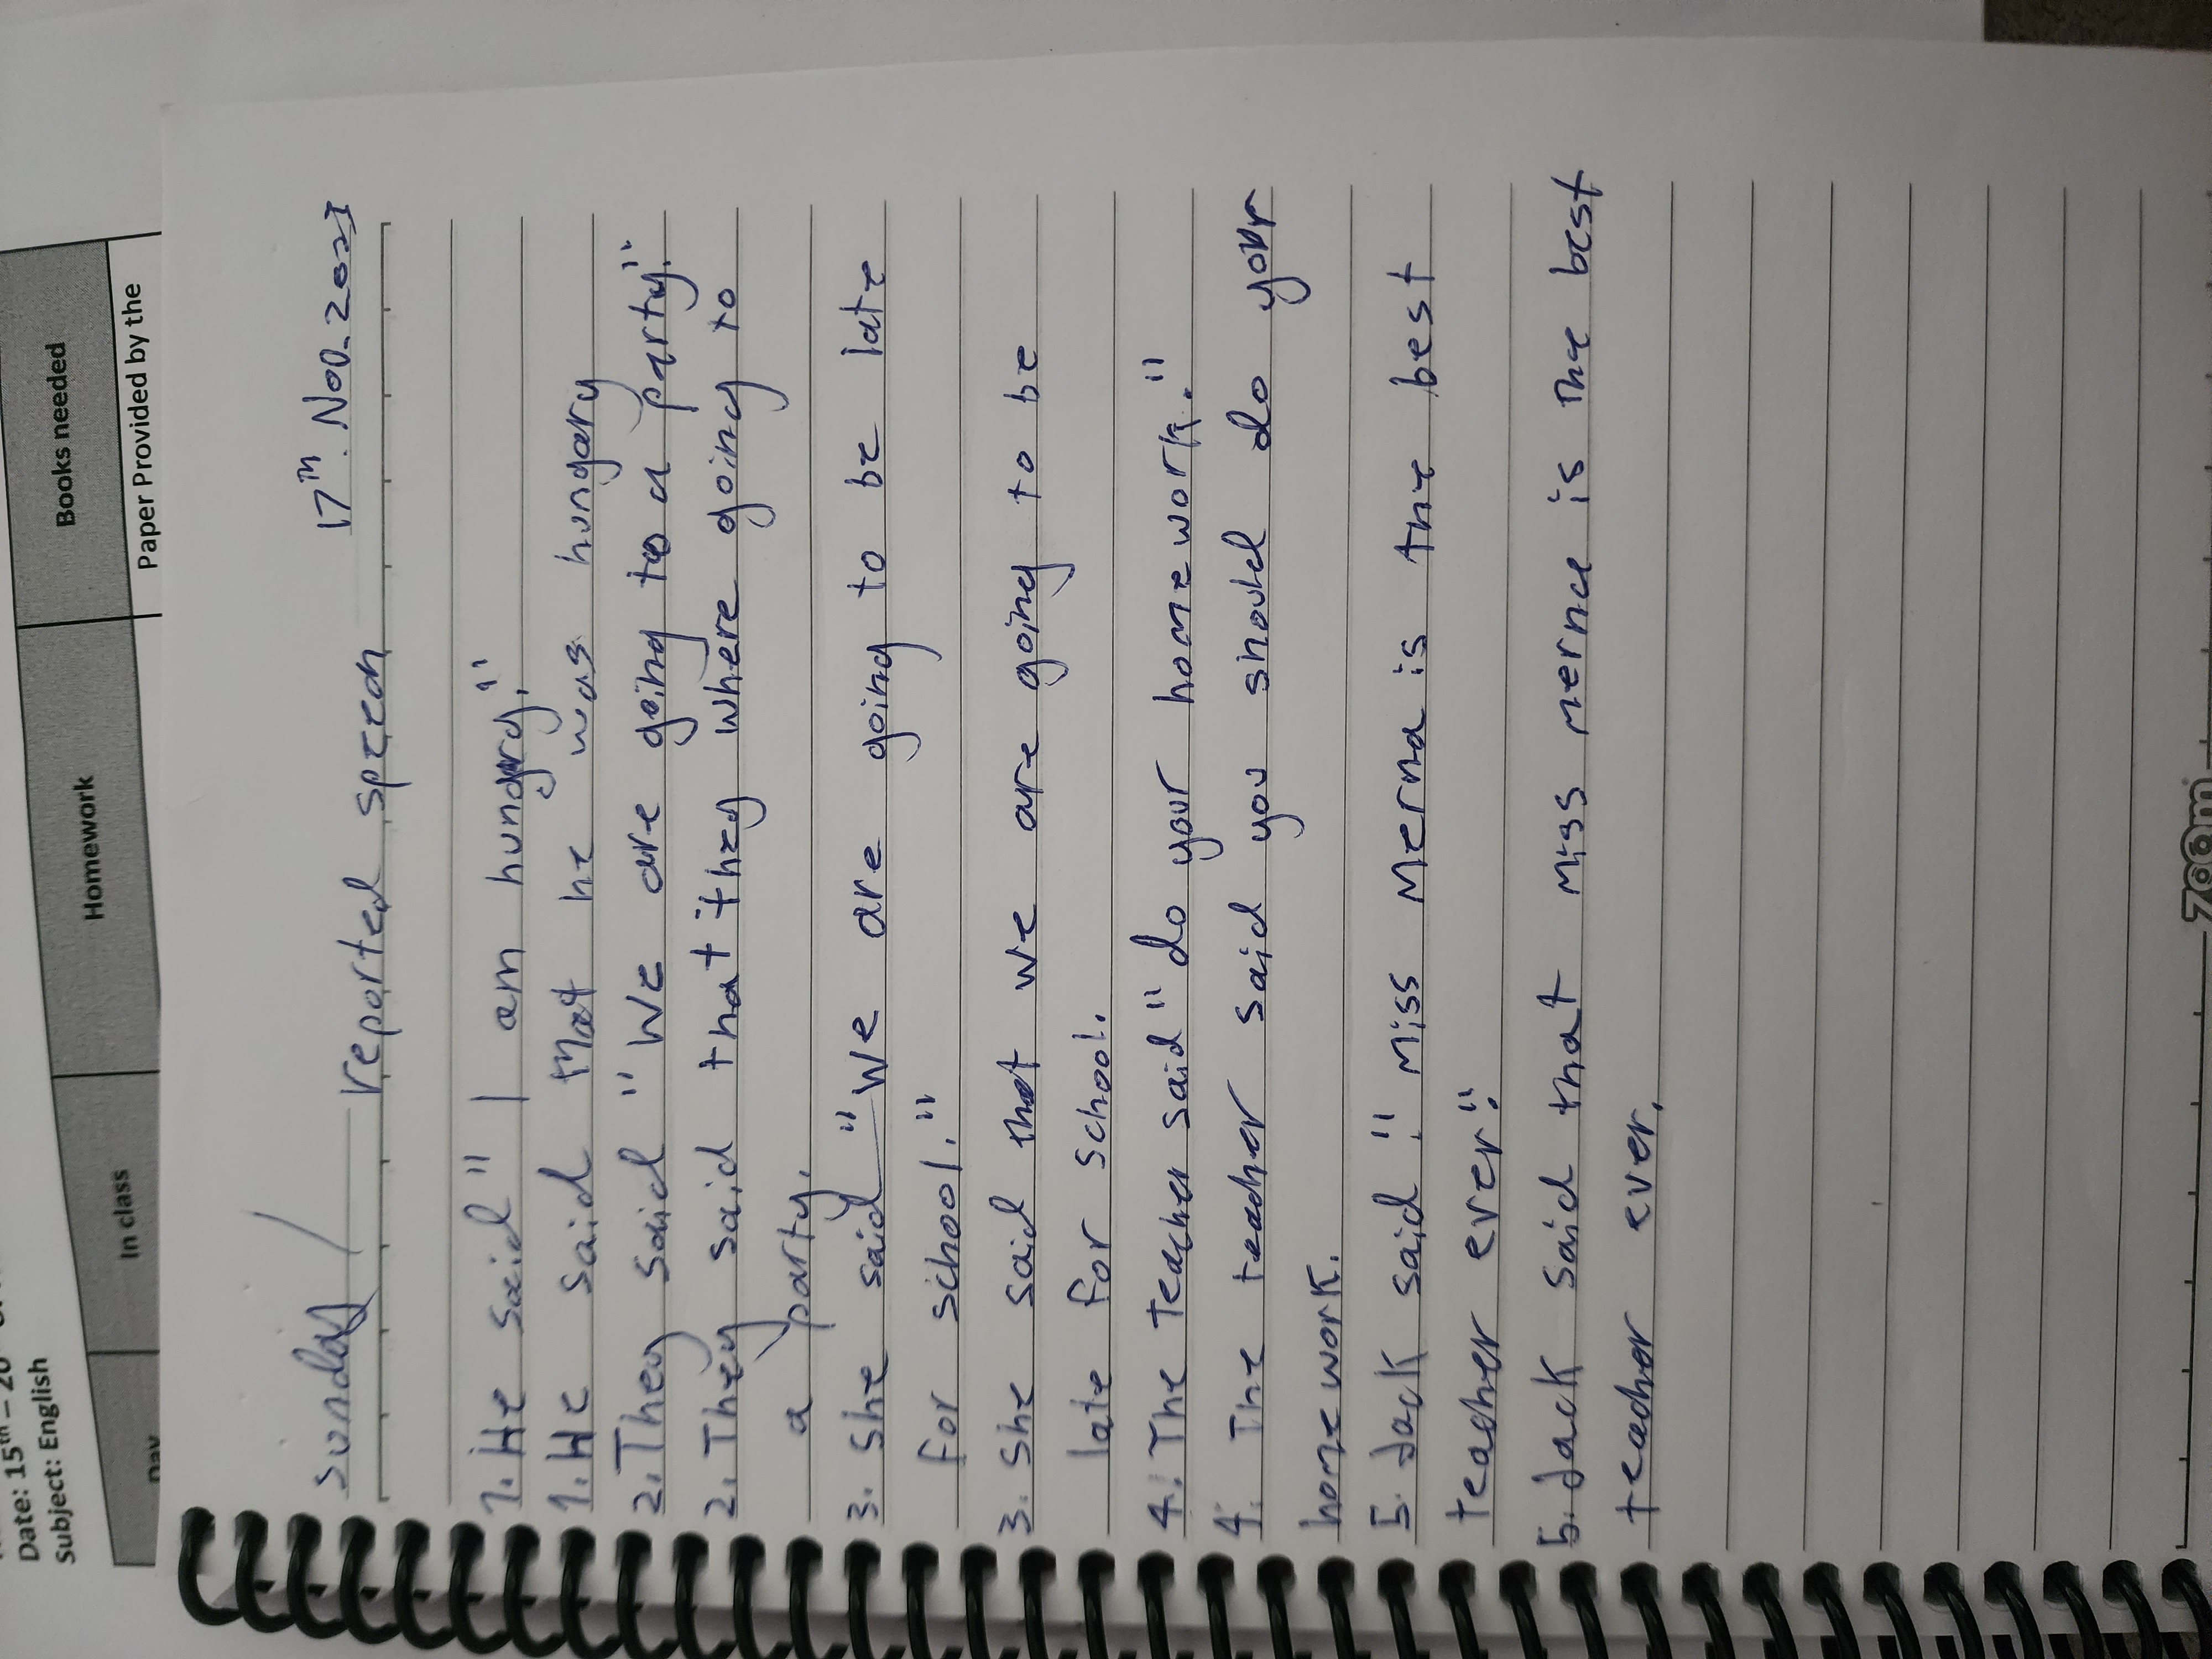 Date: 15th – 20
Subject: English
Day
In class
Homework
Books needed
Paper Provided by the
sunday / reported speech 17th. Nov. 2021
1. He said " I am hungary."
1. He said that he was hungary
2. They said " We are going to a party."
2. They said that they where going to
a party.
3. She said "We are going to be late
for school."
3. She said that we are going to be
late for school.
4. The teacher said " do your home work."
4. The teacher said you should do your
home work.
5. Jack said ." Miss Merna is the best
teacher ever."
5. Jack said that Miss merna is the best
teacher ever.
zoom